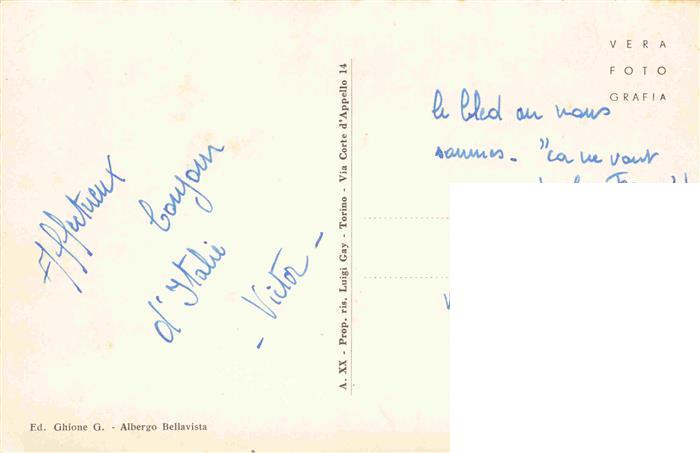 Affectueux
bonjour
d'Italie
- Victor -
Ed. Ghione G. - Albergo Bellavista
A. XX - Prop. ris. Luigi Gay - Torino - Via Corte d'Appello 14
VERA
FOTO
GRAFIA
le bled ou nous
sommes - "ça ne vaut